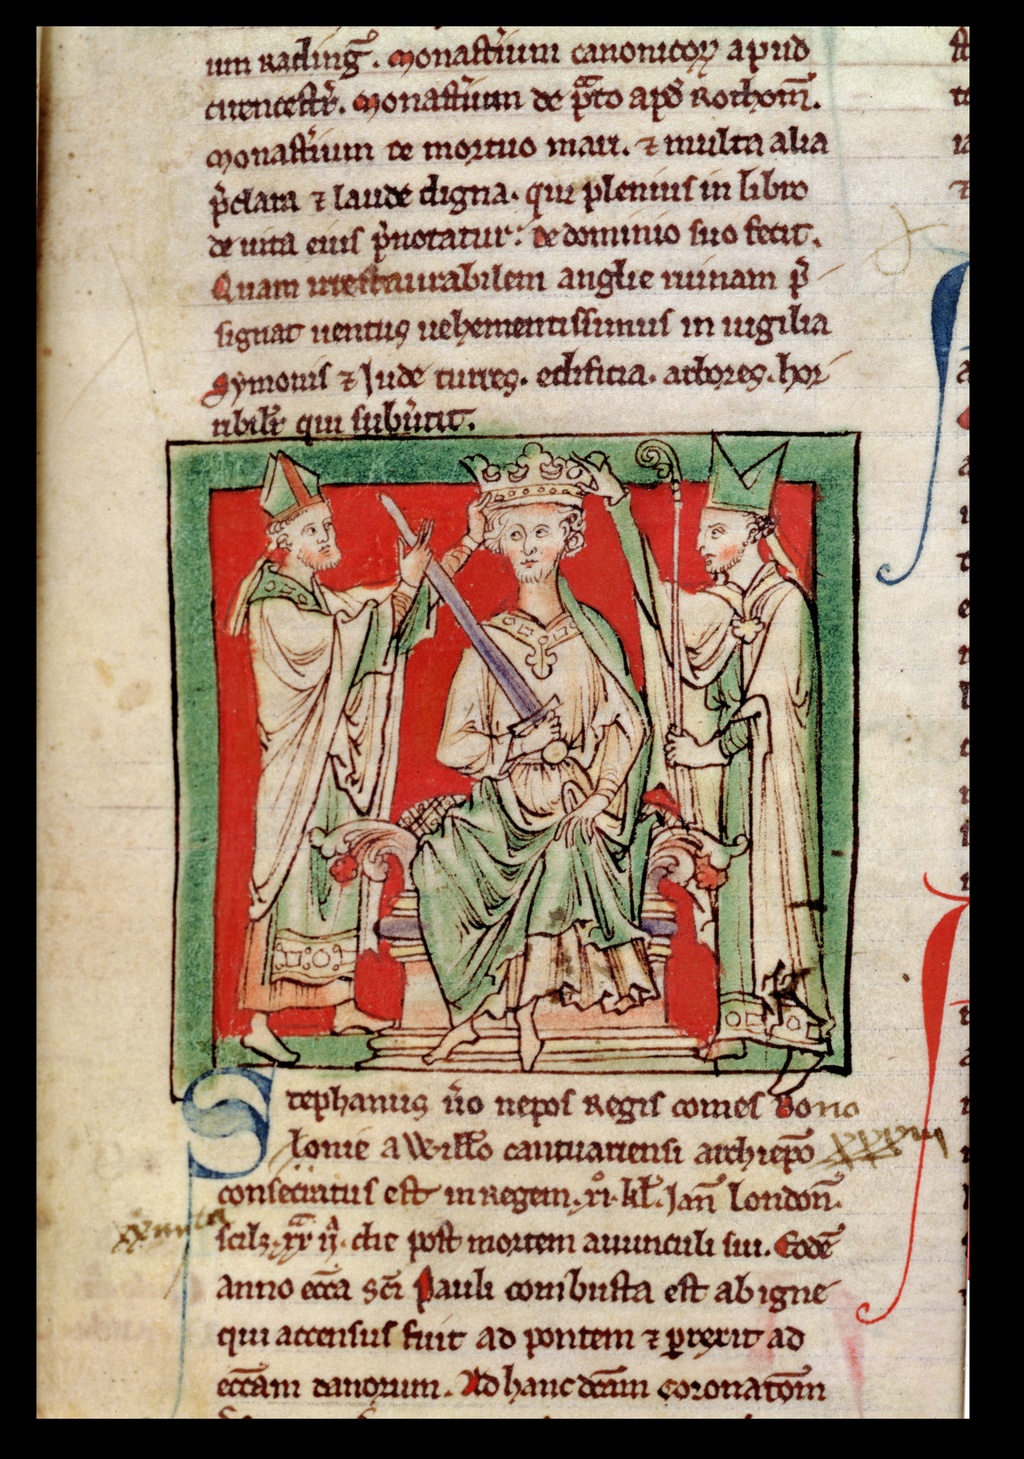 um Rading̃. Monast̾ium canonicoꝝ apud
cirencestr̃. Monast̾ium de p̃to apđ Rothom̃.
Monast̾ium de mortuo mari. ⁊ multa alia
p̾clara ⁊ laude digna. qui plenius in libro
de uita eius p̾notatur: de dominio suo fecit.
Quam irrestaurabilem anglie ruinam p̾
signat uentus uehementissimus in uigilia
Symonis ⁊ Jude turres. edificia. arbores. hor
ribilit̾ qui subu̾tit.
Stephanus ũo nepos Regis comes Bono
lonie a Will̃o cantuariensi archiep̃o
consecratus est in Regem. xi. kl̃. Jañ London̄.
scilꝫ. die post mortem auunculi sui. Eodẽ
anno ecc̃a sc̃i Pauli combusta est ab igne
qui accensus fuit ad pontem ⁊ ꝑrexit ad
ecc̃am danorum. Ad hanc dc̃am coronatõm